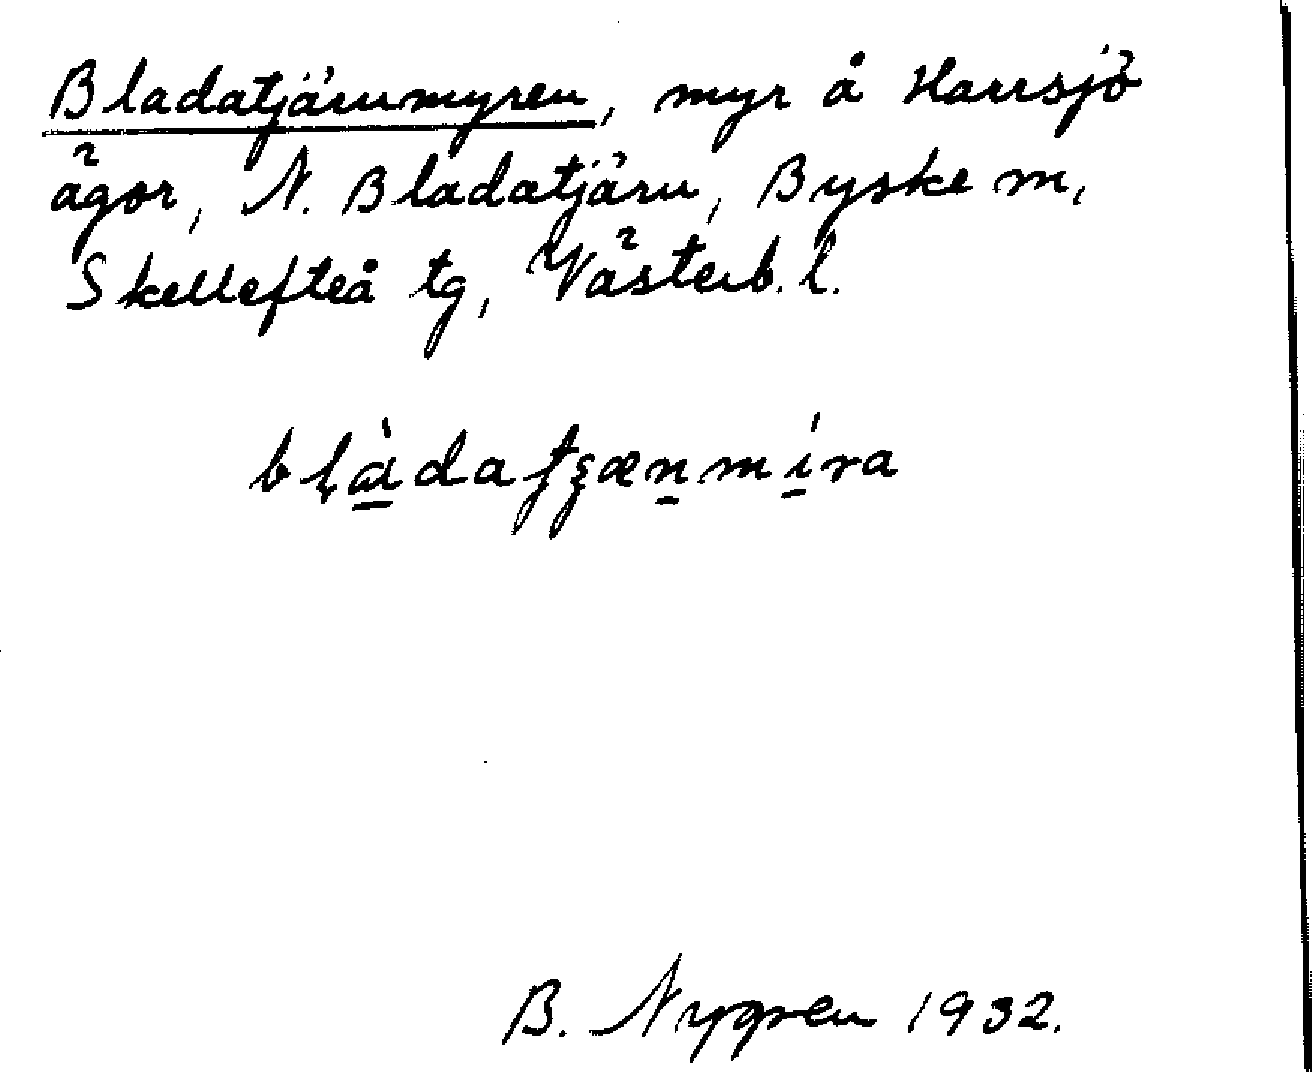 Bladatjärnmyren, myr å Harrsjö
ägor, N. Bladatjärn, Byske sn,
Skellefteå tg, Västerb. l.
bļàdatʂænmíra
B. Nygren 1932.